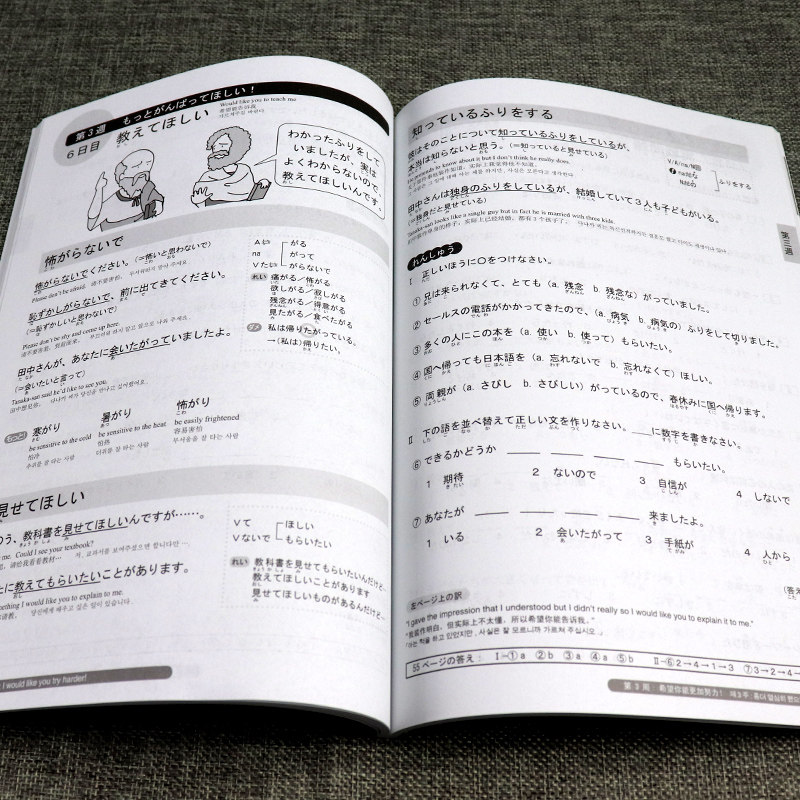 第3週 もっとがんばってほしい!
Would like you to teach me
希望能告诉我
가르쳐주길 바란다
6日目 教えてほしい
わかったふりをして
いましたが、実は
よくわからないので、
教えてほしいんです。
怖がらないで
怖がらないでください。(=怖いと思わないで)
Please don't be afraid.
恥ずかしがらないで、前に出てきてください。
(=恥ずかしいと思わないで)
Please don't be shy and come up here.
田中さんが、あなたに会いたがっていましたよ。
(=会いたいと言って)
Tanaka-san said he'd like to see you.
Aい がる
na がって
Vたい がらないで
れい 痛がる/怖がる
欲しがる/寂しがる
残念がる/得意がる
見たがる/食べたがる
私は帰りたがっている。
→(私は)帰りたい。
もっと 寒がり 暑がり 怖がり
be sensitive to the cold be sensitive to the heat be easily frightened
怕冷 怕热 容易害怕
추위를 잘 타는 사람 더위를 잘 타는 사람 무서움을 잘 타는 사람
見せてほしい
教科書を見せてほしいんですが……。
me. Could I see your textbook?
に教えてもらいたいことがあります。
mething I would like you to explain to me.
Vて ほしい
Vないで もらいたい
れい 教科書を見せてもらいたいんだけど…
教えてほしいことがあります
見せてほしいものがあるんだけど…
I would like you try harder!
知っているふりをする
彼はそのことについて知っているふりをしているが、
本当は知らないと思う。(=知っていると見せている)
He pretends to know about it but I don't think he really does.
V/A/na/N普
naだな
Nだの
ふりをする
田中さんは独身のふりをしているが、結婚していて3人も子どもがいる。
(=独身だと見せている)
Tanaka-san looks like a single guy but in fact he is married with three kids.
第三週
れんしゅう
Ⅰ 正しいほうに○をつけなさい。
① 兄は来られなくて、とても(a. 残念 b. 残念な)がっていました。
② セールスの電話がかかってきたので、(a. 病気 b. 病気の)ふりをして切りました。
③ 多くの人にこの本を(a. 使い b. 使って)もらいたい。
④ 国へ帰っても日本語を(a. 忘れないで b. 忘れなくて)ほしい。
⑤ 両親が(a. さびし b. さびしい)がっているので、春休みに国へ帰ります。
Ⅱ 下の語を並べ替えて正しい文を作りなさい。__に数字を書きなさい。
⑥ できるかどうか ___ ___ ___ ___ もらいたい。
1 期待 2 ないので 3 自信が 4 しないで
⑦ あなたが ___ ___ ___ ___ 来ましたよ。
1 いる 2 会いたがって 3 手紙が 4 人から
左ページ上の訳
"I gave the impression that I understood but I didn't really so I would like you to explain it to me."
"我装作明白,但实际上不太懂,所以希望你能告诉我。"
55ページの答え: Ⅰ-①a ②b ③a ④a ⑤b Ⅱ-⑥2→4→1→3 ⑦3→2→4
第3周:希望你能更加努力!